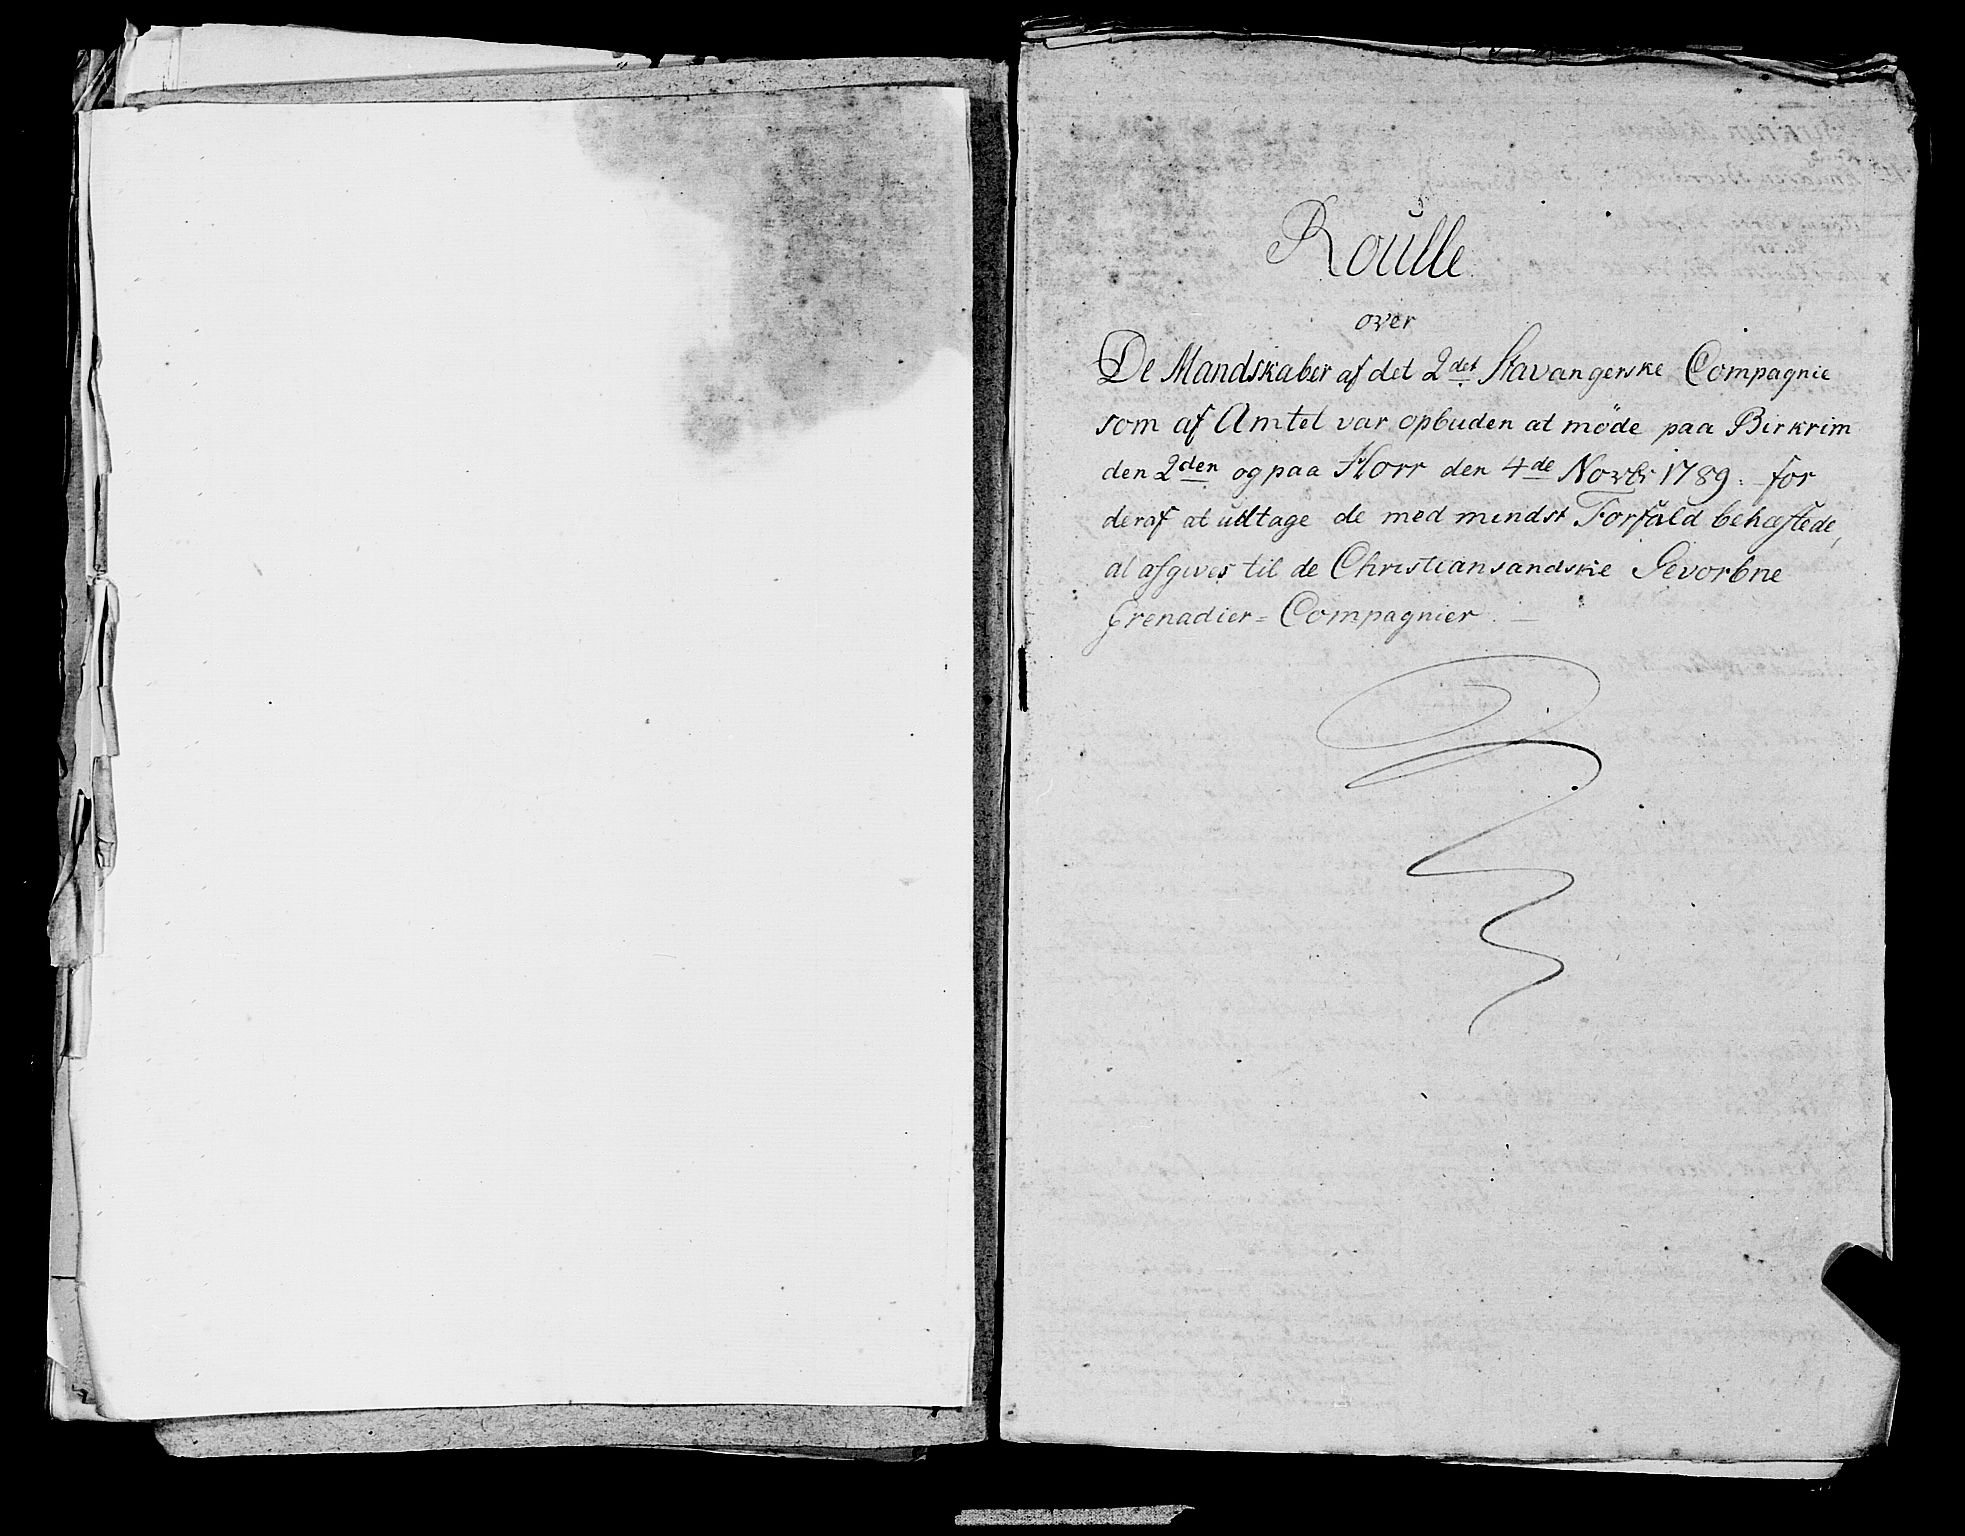 Roulle
over
De Mandskaber af det 2det Stavangerske Compagnie
som af Amtet var opbuden at møde paa Birkrim
den 2den og paa Horr den 4de Novbr 1789. for
deraf at udtage de med mindst Forfald behæftede,
at afgives til de Christiansandske Gevorbne
Grenadier= Compagnier. —